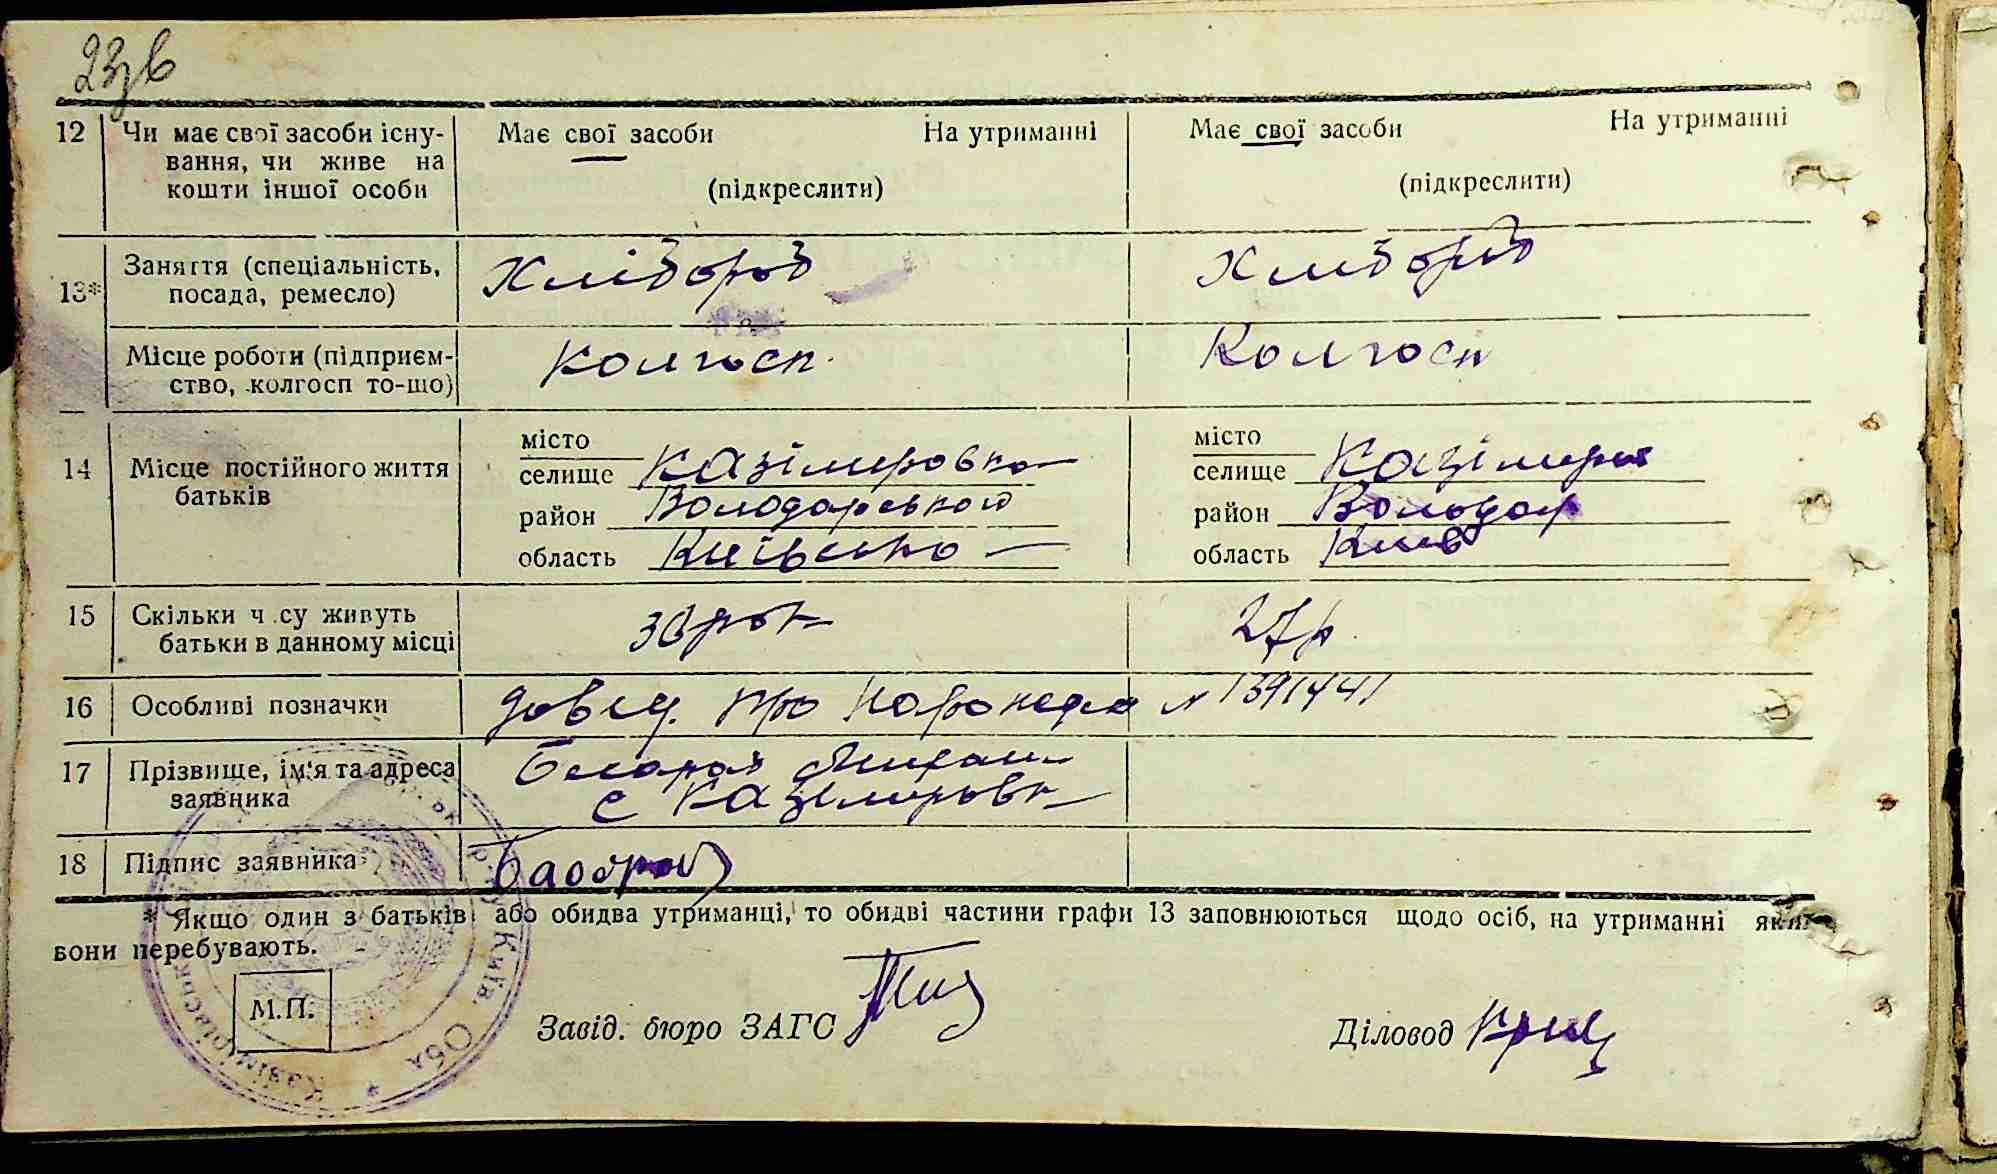 23зв
12 Чи має свої засоби існу- Має свої засоби На утриманні Має свої засоби На утриманні
вання, чи живе на
кошти іншої особи (підкреслити) (підкреслити)
13* Заняття (спеціальність, Хлібороб Хлібороб
посада, ремесло)
Місце роботи (підприєм- Колгосп Колгосп
ство, колгосп то-що)
14 Місце постійного життя батьків
місто місто
селище Казіміровка селище Казімиров
район Володарського район Володар
область Київська область Київ
15 Скільки ч су живуть 30 рок 27 р.
батьки в данному місці
16 Особливі позначки довід. про народжен № 1391441
17 Прізвище, ім'я та адреса
заявника с Казіміровк
18 Підпис заявника
* Якщо один з батьків або обидва утриманці, то обидві частини графи 13 заповнюються щодо осіб, на утриманні яких
вони перебувають.
М.П.
Завід. бюро ЗАГС Діловод
Казімірівськ Київ. Обл *